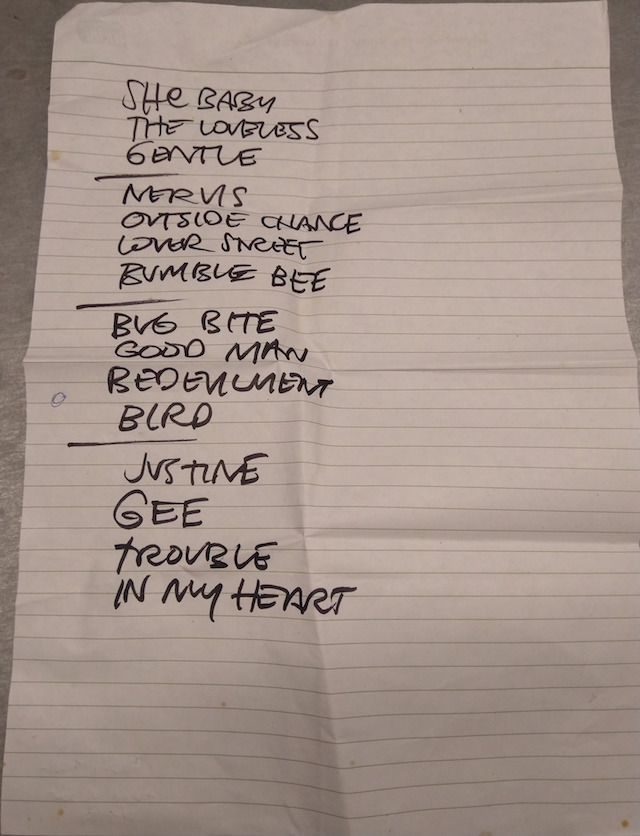 SHe BABY
THE LOVELESS
GENTLE
NERVIS
OUTSIDE CHANCE
LOVER STREET
BUMBLE BEE
BUG BITE
GOOD MAN
BEDEVILMENT
BIRD
JUSTINE
GEE
TROUBLE
IN MY HEART